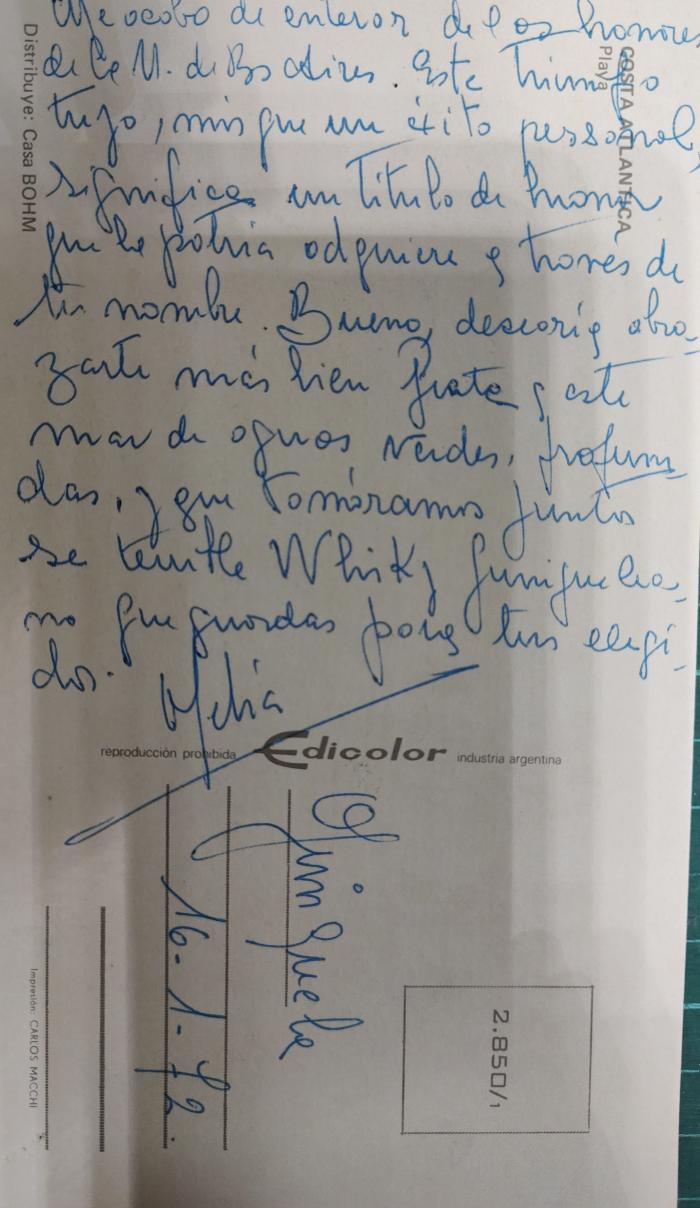 Me acabo de enterar de los honores
de la U. de Bs Aires. Este triunfo
tuyo, más que un éxito personal,
significa un título de honor
que la patria adquiere a través de
tu nombre. Bueno, desearía abra-
zarte más bien frente a este
mar de aguas verdes, profun-
das, y que tomáramos juntos
ese Whisky quniquelea-
no que guardas para tus elegi-
dos. Ofelia
reproducción prohibida Edicolor industria argentina
Quniquela
16-1-72.
2.850/1
COSTA ATLANTICA
Playa
Distribuye: Casa BOHM
Impresión: CARLOS MACCHI